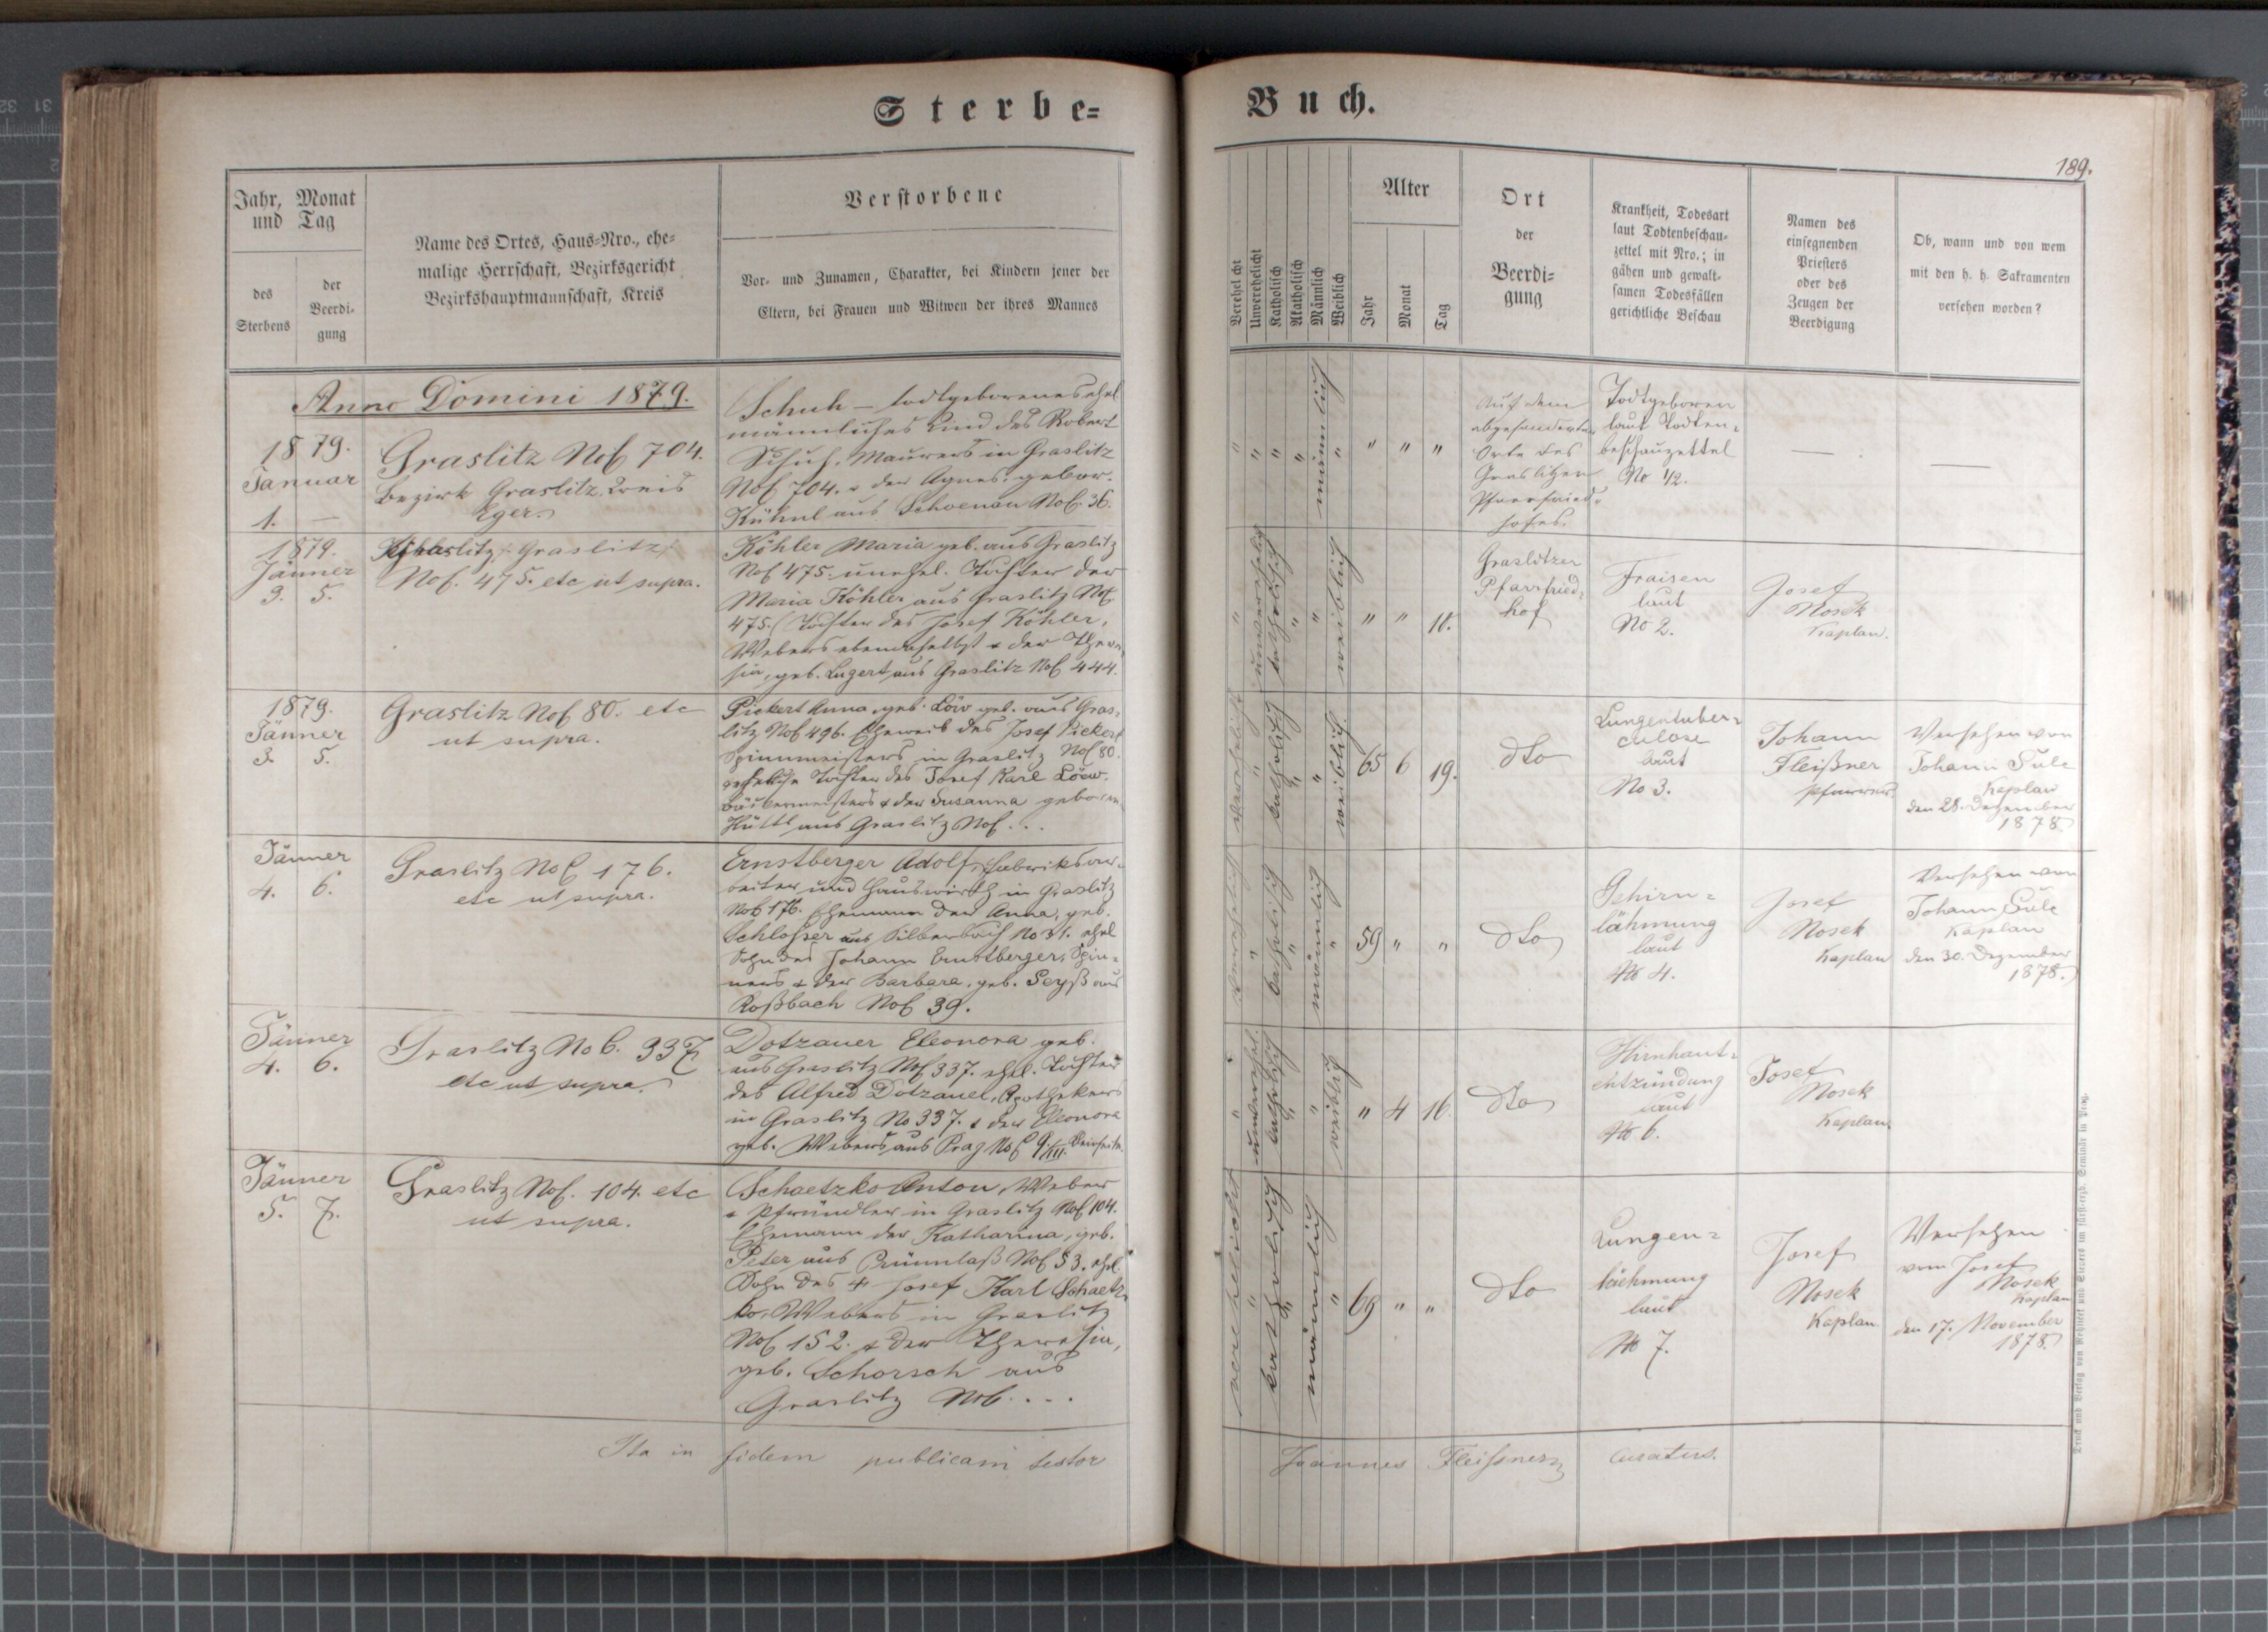 Sterbe=
Buch.
189.
Jahr, Monat
und Tag
des
Sterbens
der
Beerdi-
gung
Name des Ortes, Haus-Nro., ehe-
malige Herrschaft, Bezirksgericht
Bezirkshauptmannschaft, Kreis
Verstorbene
Vor- und Zunamen, Charakter, bei Kindern jener der
Eltern, bei Frauen und Witwen der ihres Mannes
Verehelicht
Unverehelicht
Katholisch
Akatholisch
Männlich
Weiblich
Alter
Jahr
Monat
Tag
Ort
der
Beerdi-
gung
Krankheit, Todesart
laut Todtenbeschau-
zettel mit Nro.; in
gähen und gewalt-
samen Todesfällen
gerichtliche Beschau
Namen des
einsegnenden
Priesters
oder des
Zeugen der
Beerdigung
Ob, wann und von wem
mit den h. h. Sakramenten
versehen worden?
Anno Domini 1879.
1879.
Januar
1. —
Graslitz NoC 704.
Bezirk Graslitz, Kreis
Eger.
Schuh – todtgeborenes ehel
männliches Kind des Robert
Schuh, Maurers in Graslitz
NoC 704. & der Agnes, gebor.
Kühnl aus Schoenau NoC. 36.
" " " " männlich " " " "
Auf dem
abgesonderten
Orte des
Graslitzer
Pfarrfried-
hofes.
Todtgeboren
laut Todten-
beschauzettel
No 1/2.
—
—
1879.
Jänner
3. 5.
Graslitz
NoC. 475. etc ut supra.
Köhler Maria geb. aus Graslitz
NoC 475. unehel. Tochter der
Maria Köhler aus Graslitz NoC
475. (Tochter des Josef Köhler,
Webers ebendaselbst & der There-
sia, geb. Lugert aus Graslitz NoC 444.
" unverehelicht katholisch " " weiblich " " 10.
Graslitzer
Pfarrfried-
hof
Fraisen
laut
No 2.
Josef
Nosek
Kaplan.
1879.
Jänner
3. 5.
Graslitz NoC 80. etc
ut supra.
Pickert Anna, geb. Löw geb. aus Gras-
litz NoC 496. Eheweib des Josef Pickert
Spinnmeisters in Graslitz NoC 80.
eheliche Tochter des Josef Karl Löw.
Bäckermeisters & der Susanna geboren
Hüttl aus Graslitz NoC...
verehelicht " katholisch " " weiblich 65 6 19.
dto
Lungentuber-
culose
laut
No 3.
Johann
Fleißner
Pfarrer.
Versehen von
Johann Sulc
Kaplan
den 28. Dezember
1878.
Jänner
4. 6.
Graslitz NoC 176.
etc ut supra.
Ernstberger Adolf, Fabriksar-
beiter und Hauswirth in Graslitz
NoC 176. Ehemann der Anna, geb.
Schlosser aus Silberbach No 31. ehel
Sohn des Johann Ernstberger, Spin-
ners & der Barbara, geb. Seyß aus
Roßbach NoC 39.
verehelicht " katholisch " männlich " 59 " "
dto
Gehirn-
lähmung
laut
No 4.
Josef
Nosek
Kaplan
Versehen von
Johann Sulc
Kaplan
den 30. Dezember
1878.
Jänner
4. 6.
Graslitz NoC. 337
etc ut supra.
Dotzauer Eleonora geb.
aus Graslitz NoC 337. ehel. Tochter
des Alfred Dotzauer, Apothekers
in Graslitz No 337. & der Eleonora
geb. Webers aus Prag NoC 9/III.
" unverehel. katholisch " " weiblich " 4 16.
dto
Hirnhaut-
entzündung
laut
No 6.
Josef
Nosek
Kaplan.
Jänner
5. 7.
Graslitz NoC. 104. etc
ut supra.
Schaetzko Anton, Weber
& Pfründler in Graslitz NoC 104.
Ehemann der Katharina, geb.
Peter aus Grünnlaß NoC 53. ehel
Sohn des Josef Karl Schaetz-
ko, Webers in Graslitz
NoC 152. & der Theresia,
geb. Schorsch aus
Graslitz NoC....
verehelicht " katholisch " männlich " 69 " "
dto
Lungen-
lähmung
laut
No 7.
Josef
Nosek
Kaplan.
Versehen
vom Josef
Nosek
Kaplan
den 17. November
1878.
Ita in fidem publicam testor
Joannes Fleißner curatus.